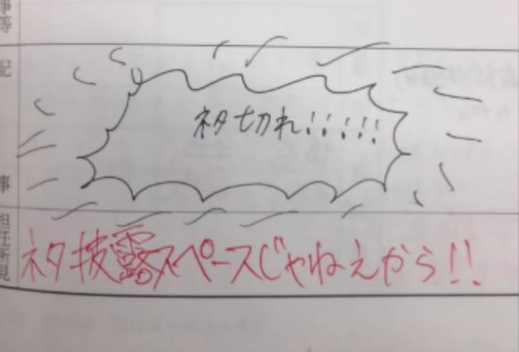 等
記
ネタ切れ!!!!!
事
担任所見
ネタ披露スペースじゃねえから!!